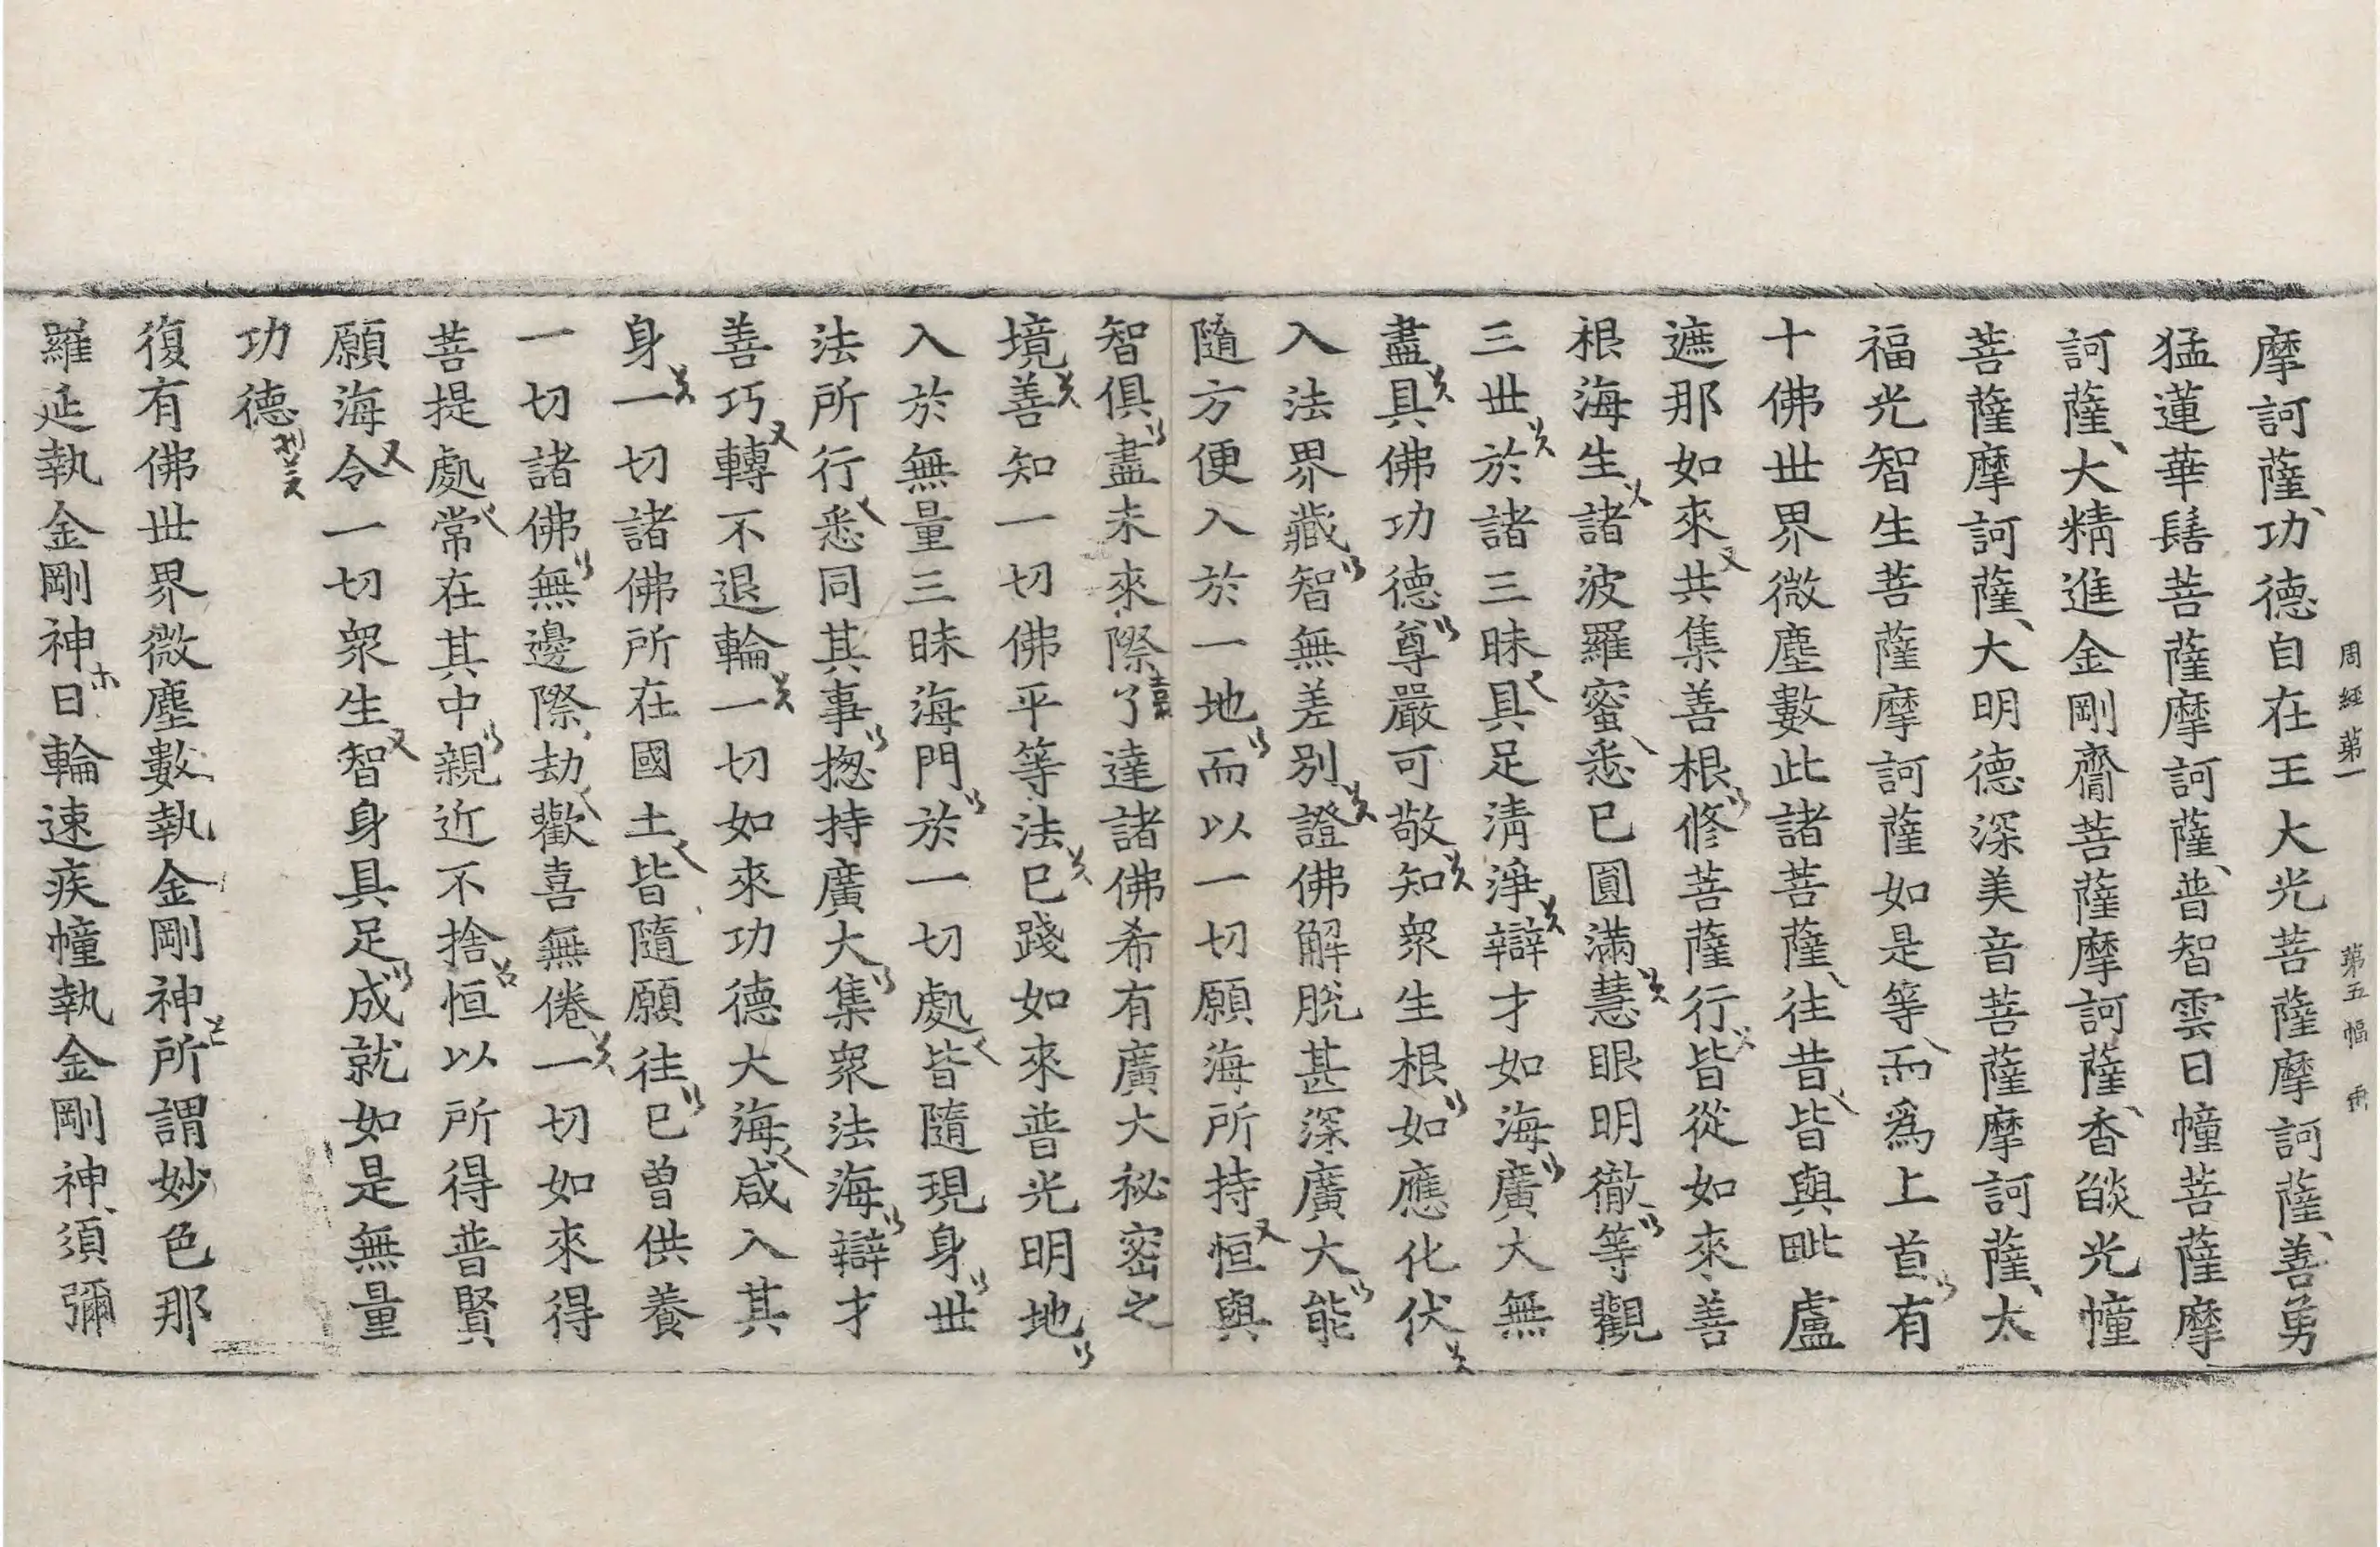 周經第一 第五幅
摩訶薩功德自在王大光菩薩摩訶薩善勇
猛蓮華髻菩薩摩訶薩普智雲日幢菩薩摩
訶薩大精進金剛齎菩薩摩訶薩香燄光幢
菩薩摩訶薩大明德深美音菩薩摩訶薩大
福光智生菩薩摩訶薩如是等而爲上首有
十佛世界微塵數此諸菩薩往昔皆與毗盧
遮那如來共集善根修菩薩行皆從如來善
根海生諸波羅蜜悉已圓滿慧眼明徹等觀
三世於諸三昧具足淸淨辯才如海廣大無
盡具佛功德尊嚴可敬知衆生根如應化伏
入法界藏智無差別證佛解脫甚深廣大能
隨方便入於一地而以一切願海所持恒與
智俱盡未來際了達諸佛希有廣大祕密之
境善知一切佛平等法已踐如來普光明地
入於無量三昧海門於一切處皆隨現身世
法所行悉同其事揔持廣大集衆法海辯才
善巧轉不退輪一切如來功德大海咸入其
身一切諸佛所在國土皆隨願往已曾供養
一切諸佛無邊際劫歡喜無倦一切如來得
菩提處常在其中親近不捨恒以所得普賢
願海令一切衆生智身具足成就如是無量
功德
復有佛世界微塵數執金剛神所謂妙色那
羅延執金剛神日輪速疾幢執金剛神須彌